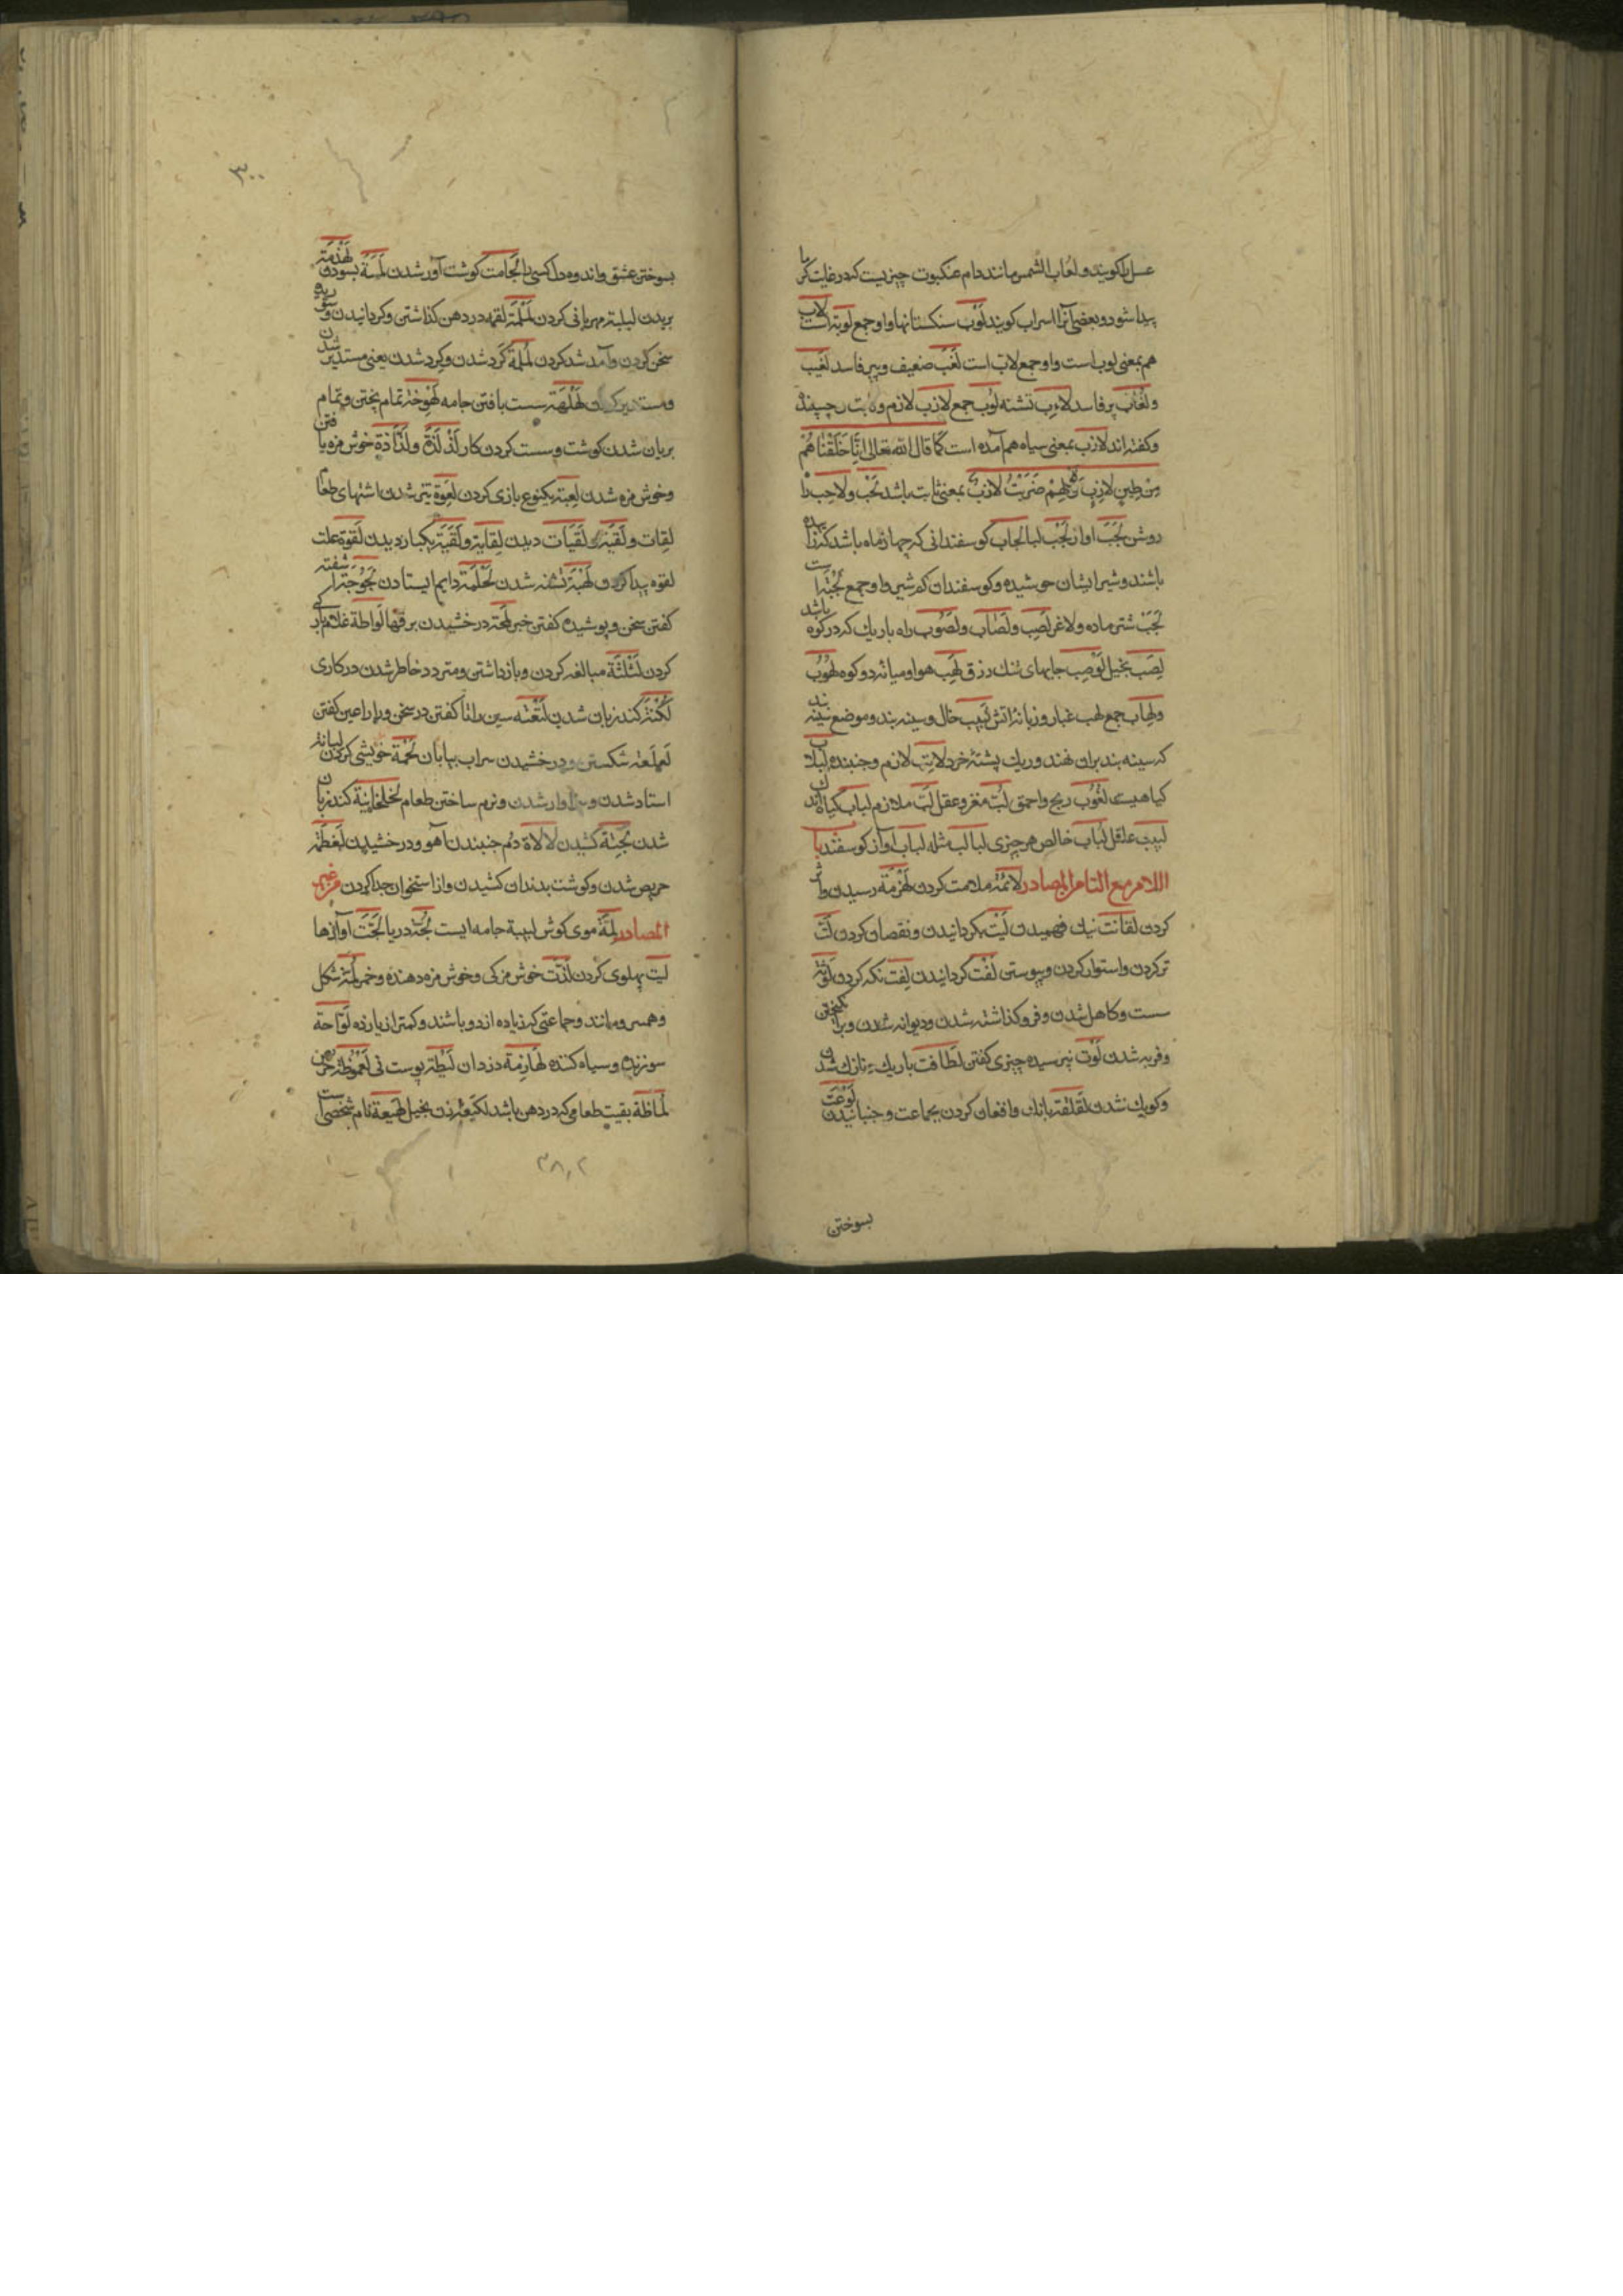 عسل را کویند و لعاب الشمس مانند دام عنکبوت چیزیست که در غایت کرما
پیدا شود و بعضی آنرا سراب کویند لَوْب سنکستانها و او جمع لوبة است لاب
هم بمعنی لوب است و او جمع لابت است لَغَبْ ضعیف و پیر فاسد لَغِیب
و لُغاب پر فاسد لاءِب تشنه لُوب جمع لازب لازم و ثابت و چسپنده
و کفته اند لازب بمعنی سیاه هم آمده است کَمَا قال الله تعالی اِنَّا خَلَقْنَاهُمْ
مِنْ طِینٍ لازِبٍ ضَرْبَتُ لازبْ بمعنی ثابت باشد لَحْب و لاحِب راه
روشن لَجَبْ اواز لَجْب لجاب کوسفندانی که چهار ماه باشد که زاییده
باشند و شیر ایشان خوشیده و کوسفندان کم شیر و او جمع لَجْبَة است
لَجَبْ شتر ماده و لاغر لِصْب و لصاب و لصوب راه باریک که در کوه باشد
لَصِبْ بخیل لَوْصِب جایهای تنک رزق لَهِب هوا و میانه دو کوه لُهُوب
و لِهاب جمع لهب غبار و زبانهٔ اتش لَبِیب خال و سینه بند و موضع سینه بند
که سینه بند بران نهند و ریک پشتهٔ خرد لاتِب لازم و جنبنده لبلاب
کیاهیست لُغُوب رنج و احمق لُبّ مغز و عقل لَبّ ملازم لباب کیاه اندک
لبیب عاقل لُباب خالص هر چیزی لبالب مثله لبلاب آواز کوسفند با
اللام مع التا من المصادر لائمة ملامت کردن لَهْزَمَة رسیدن و اثر
کردن لقانت نیک فهمیدن لَیْت بکردانیدن و نقصان کردن لَتّ
تر کردن و استوار کردن و پیوستن لَفْت کردانیدن لِفت نکه کردن لَوْثَة
سست و کاهل شدن و فرو کذاشته شدن و دیوانه شدن و برانکیختن
و فربه شدن لَوْت نپرسیده چیزی کفتن لَطافت باریک و نازک شدن
و کوچک شدن لَقْلَقَة بانک و افغان کردن بجماعت و جنبانیدن لَوْعَت
بسوختن
۳۰۰
بسوختن عشق و اندوه دل کسی را لَحَامت کوشت آور شدن لَمْسَة بسودن لَهْذَمَة
بریدن لبلبة مهربانی کردن لَمْلَمَة لقمه در دهن کذاشتن و کردانیدن و
سخن کردن و آمد شد کردن لَمْلَمَة کرد شدن و کرد شدن یعنی مستدیر شدن
و مستدیر کردن لَهْلَهَة سست بافتن جامه لَهْوَجَة تمام پختن و تمام
بریان شدن کوشت و سست کردن کار لَذْلَذَة و لَذَاذة خوش مزه یافتن
و خوش مزه شدن لعبة یکنوع بازی کردن لَعْوَة تیز شدن اشتهای طعام
لقات و لَقْیَة و لَقَیات دیدن لِقایة و لَقْیَة یکبار دیدن لَقْوَة علت
لقوه پیدا کردن لَهْبَة تشنه شدن لَحْلَحَة دایم ایستادن
کفتن سخن و پوشیده کفتن خبر لَمْحَة درخشیدن برقها لِوَاطَة غلام باره کی
کردن لَثْلَثَة مبالغه کردن و باز داشتن و متردد خاطر شدن در کاری
لُکْنَة کند زبان شدن لُثْغَة سین را ثا کفتن در سخن و را را عین کفتن
لَعْلَعَة شکستن و درخشیدن سراب بیابان لُحْمَة خویشی کردن لبانة
استاد شدن و سزاوار شدن و نرم ساختن طعام لَخْلَخَانیة کند زبان
شدن لَجِیَّة کشیدن لالاة دم جنبندن آهو و درخشیدن لَغْطَمَة
حریص شدن و کوشت بدندان کشیدن و از استخوان جدا کردن من غیر
المصادر لِمَّة موی کوش لبیبة جامه ایست لُجَّة دریا لَجَّتْ آوازها
لیت پهلوی کردن لَذَّت خوش مزکی و خوش مزه دهنده و خمر لُمَة شکل
و همسر و مانند و جماعتی که زیاده از دو باشند و کمتر از یازده لَوَّاحة
سوزنده و سیاه کننده لَهازِمَة دزدان لِیْطَة پوست نی لُعْمُوظَة حریص
لُماظة بقیت طعامی که در دهن باشد لَکِیعَة زن بخیل لَهِیعة نام شخصی است